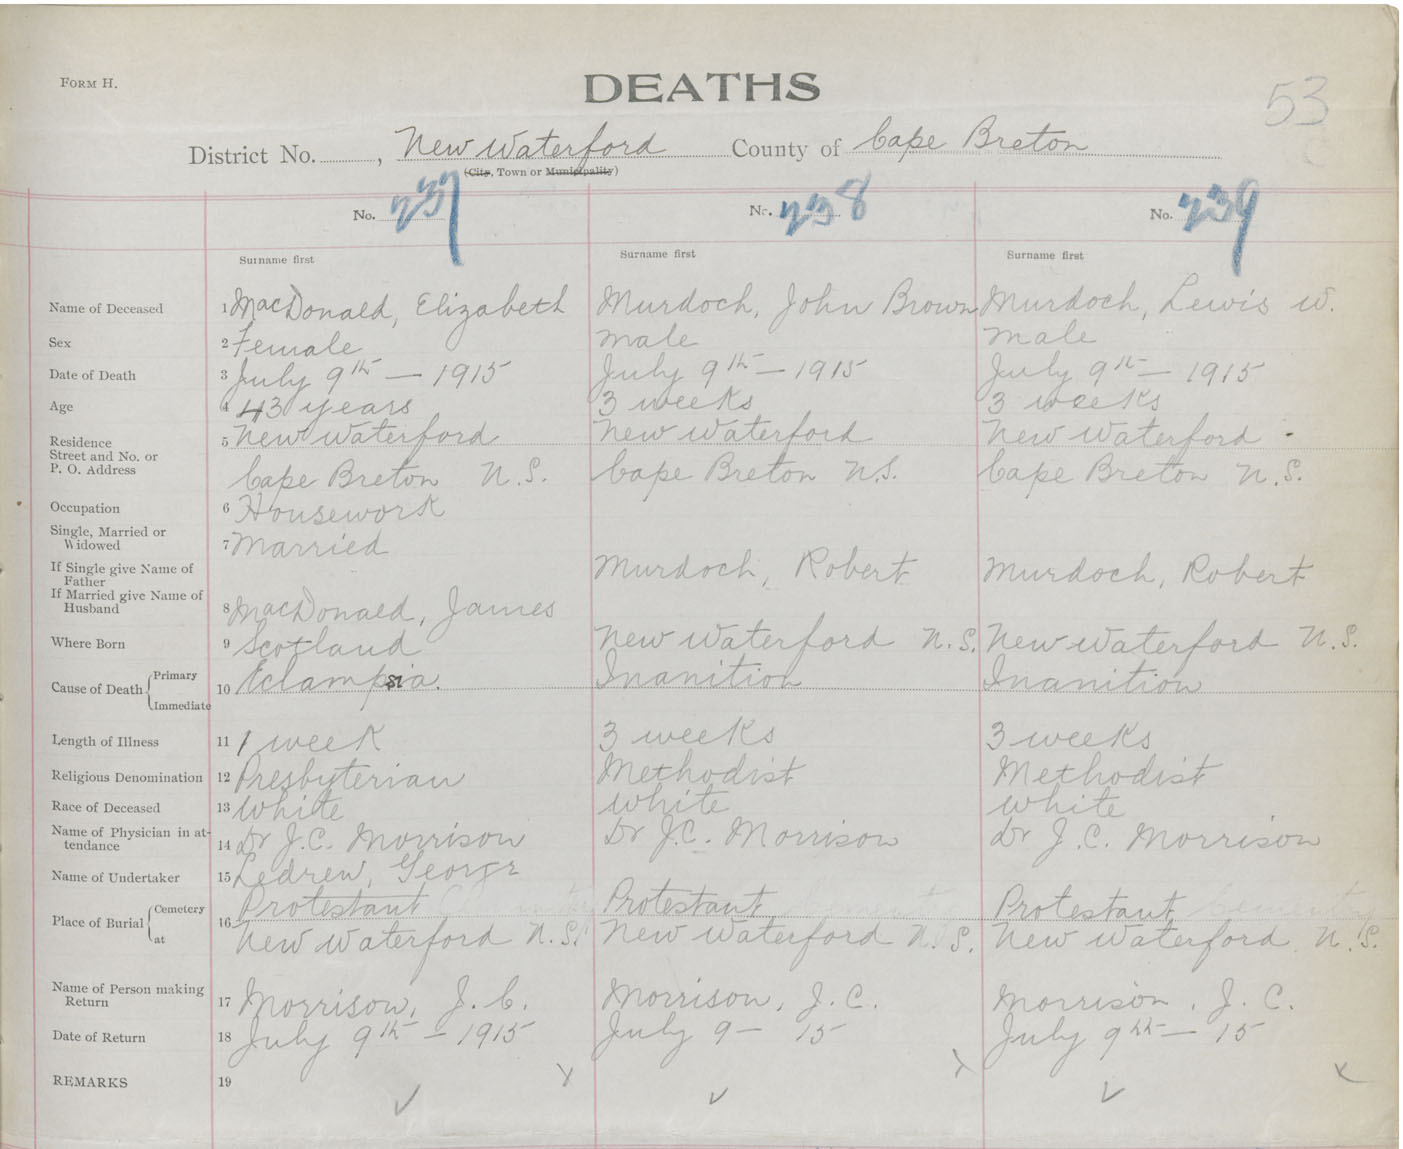 FORM H.
DEATHS
53
District No. , New Waterford County of Cape Breton
(City, Town or Municipality)
No. 237 No. 238 No. 239
Surname first Surname first Surname first
Name of Deceased 1 MacDonald, Elizabeth Murdoch, John Brown Murdoch, Lewis W.
Sex 2 Female male male
Date of Death 3 July 9th — 1915 July 9th — 1915 July 9th — 1915
Age 4 43 years 3 weeks 3 weeks
Residence 5 New Waterford New Waterford New Waterford
Street and No. or
P. O. Address Cape Breton N.S. Cape Breton N.S. Cape Breton N.S.
Occupation 6 Housework
Single, Married or
Widowed 7 Married
If Single give Name of
Father Murdoch, Robert Murdoch, Robert
If Married give Name of
Husband 8 MacDonald, James
Where Born 9 Scotland New Waterford N.S. New Waterford N.S.
Primary
Cause of Death 10 Eclampsia. Inanition Inanition
Immediate
Length of Illness 11 1 week 3 weeks 3 weeks
Religious Denomination 12 Presbyterian Methodist Methodist
Race of Deceased 13 White white white
Name of Physician in at-
tendance 14 Dr J.C. Morrison Dr J.C. Morrison Dr J.C. Morrison
Name of Undertaker 15 Ledrew, George
Cemetery Protestant Protestant Protestant Cemetery
Place of Burial 16
at New Waterford N.S. New Waterford N.S. New Waterford N.S.
Name of Person making
Return 17 Morrison, J.C. Morrison, J.C. Morrison, J.C.
Date of Return 18 July 9th — 1915 July 9 — 15 July 9th — 15
REMARKS 19